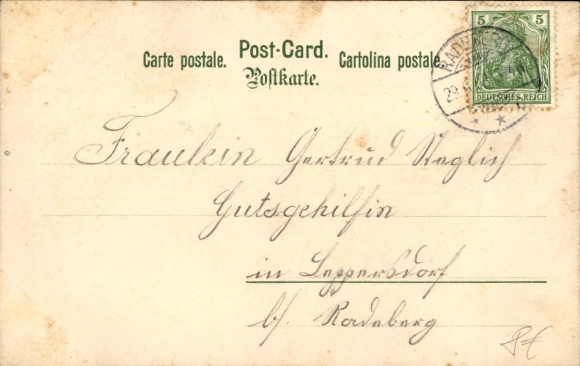 Carte postale. Post-Card. Cartolina postale
Postkarte.
5 5
DEUTSCHES REICH
29
Fräulein Gertrud Steglich
Gutsgehilfin
in Leppersdorf
b/. Radeberg
8€